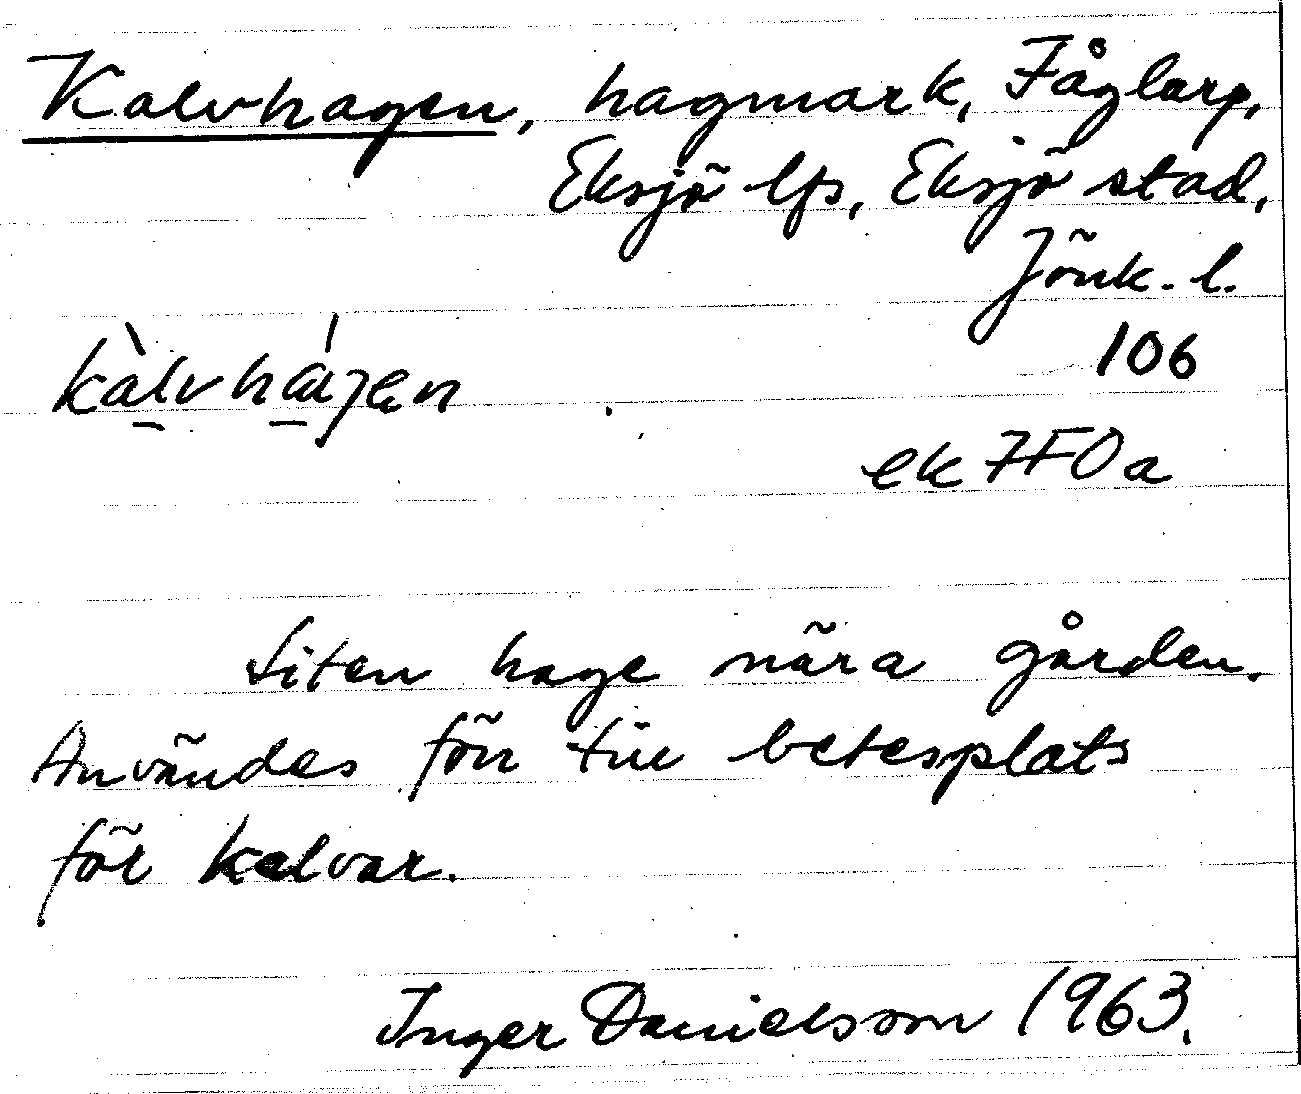 Kalvhagen, hagmark, Fåglarp,
Eksjö lfs, Eksjö stad,
Jönk. l.
106
kàlvháɡen
ek 7F0a
Liten hage nära gården.
Användes förr till betesplats
för kalvar.
Inger Danielsson 1963.